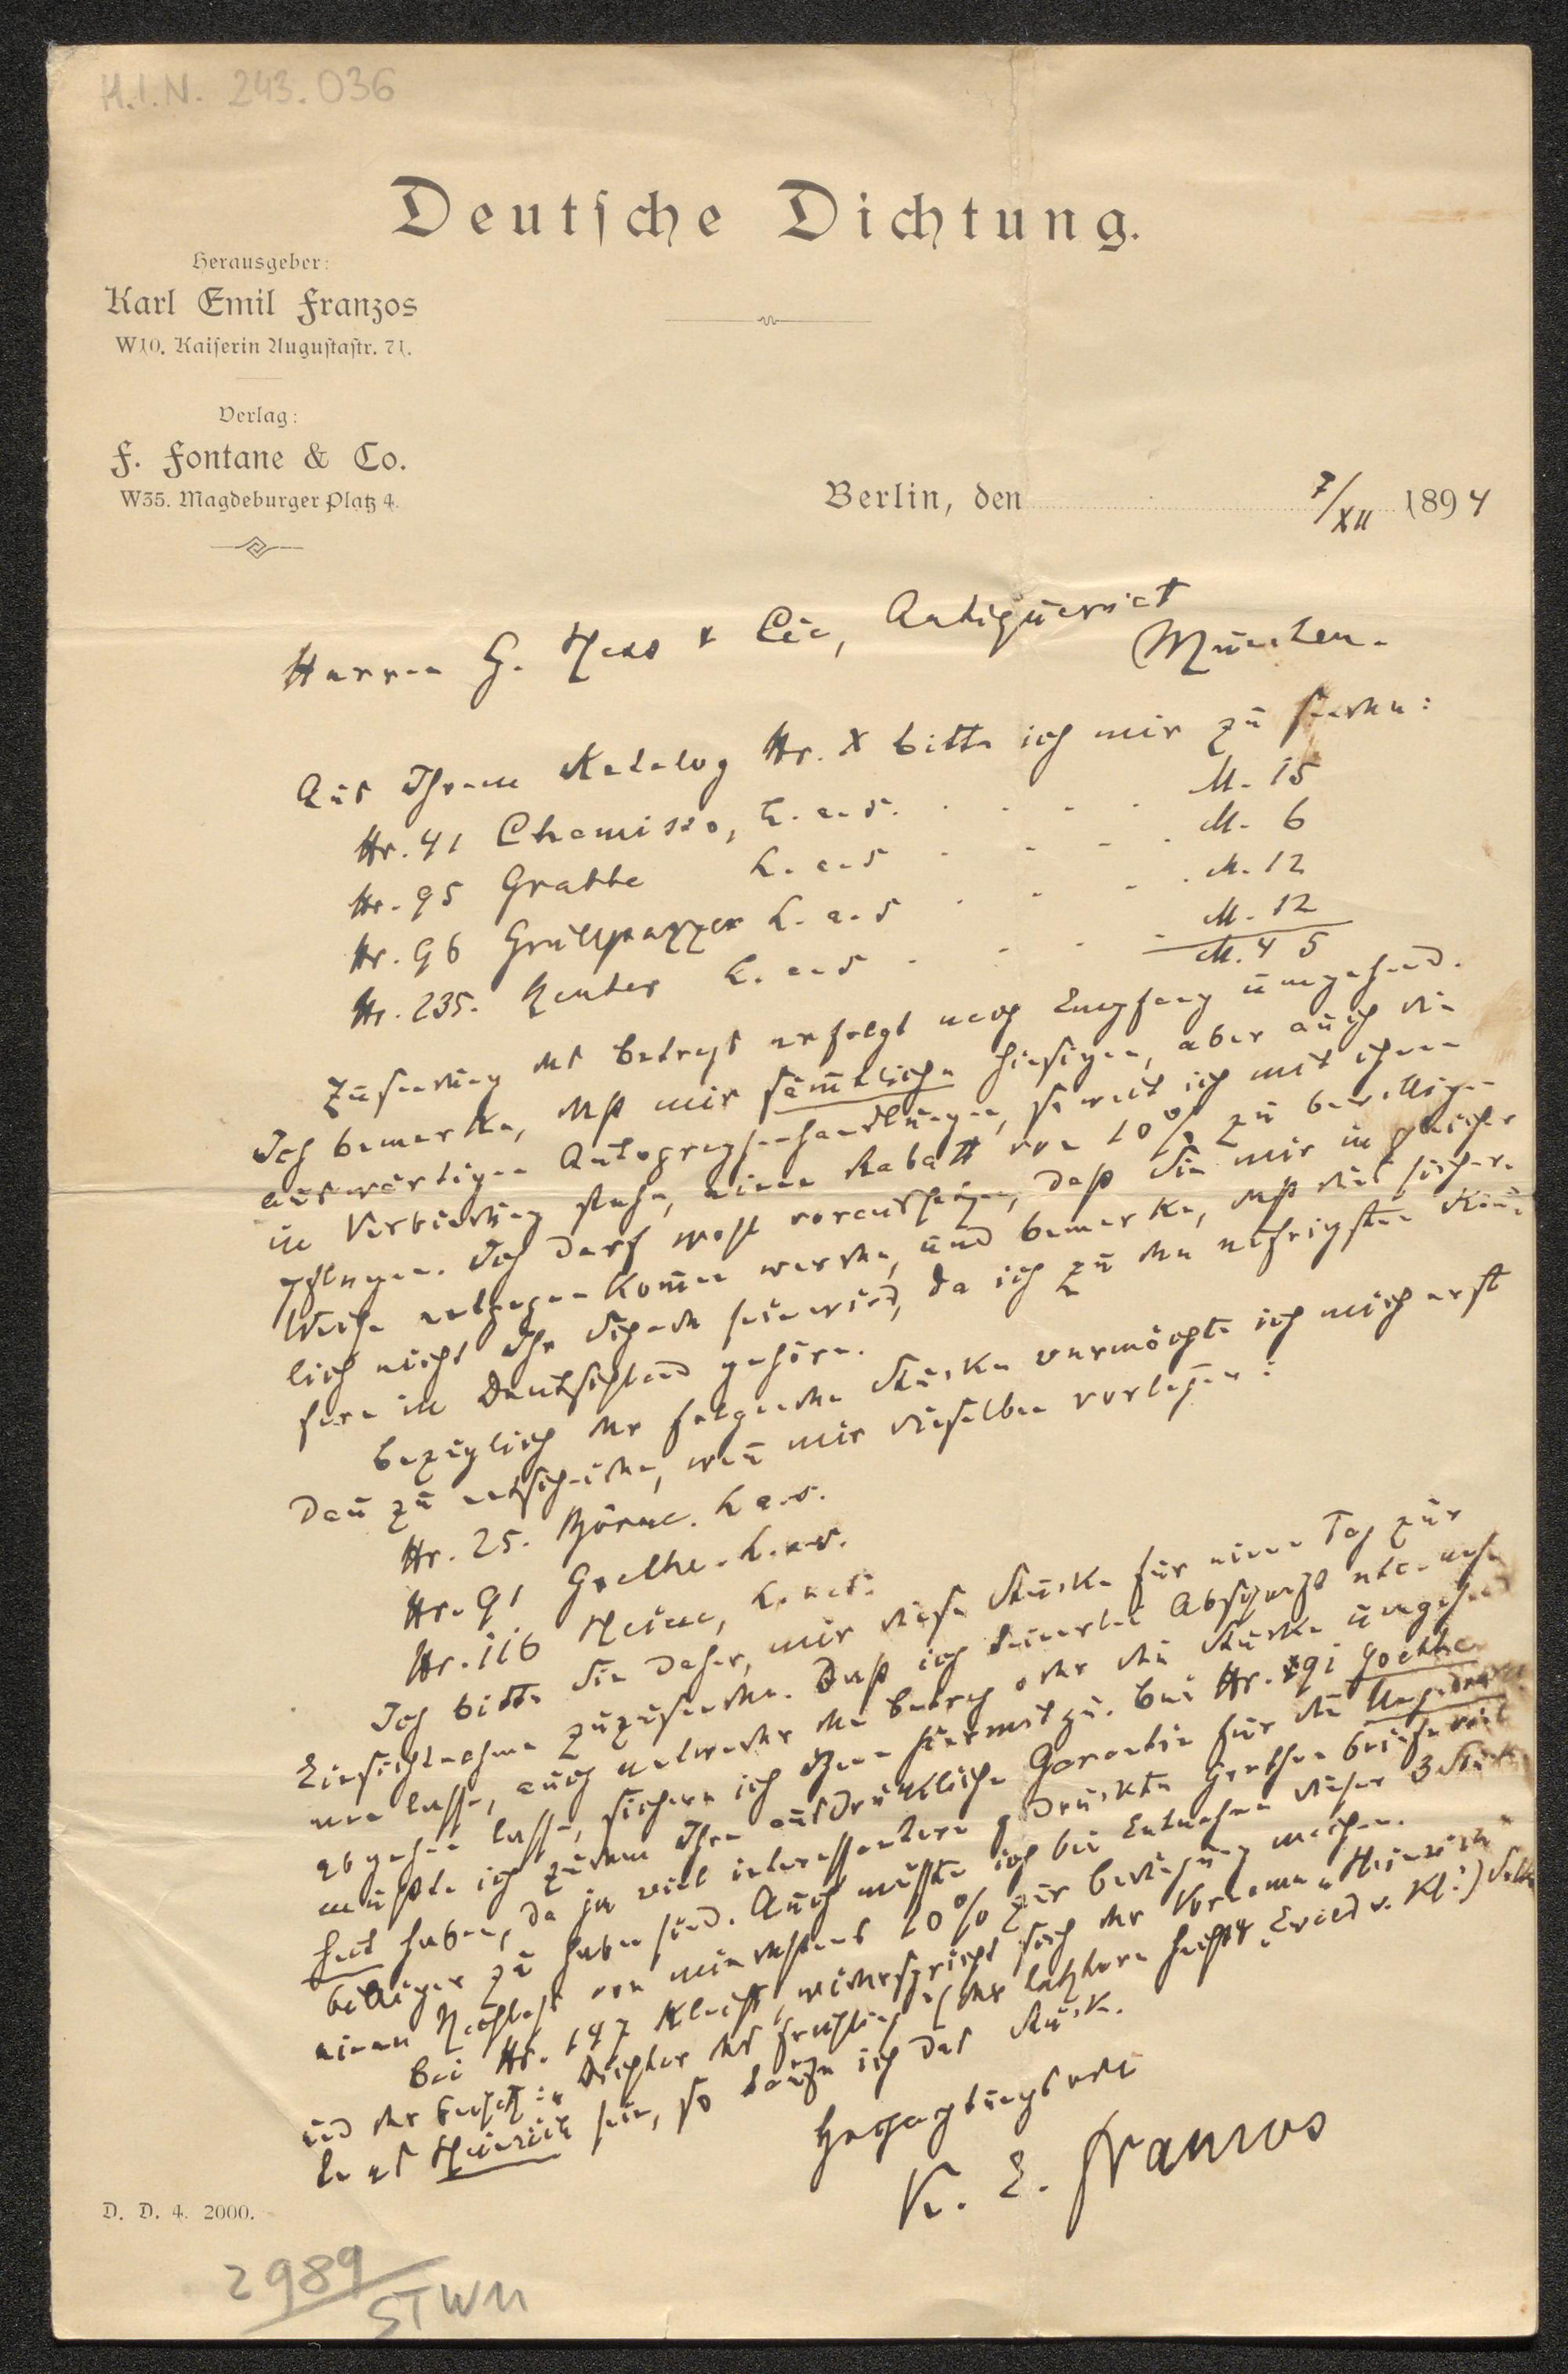 H.I.N. 243.036
Deutsche Dichtung.
Herausgeber:
Karl Emil Franzos
W10. Kaiserin Augustastr. 71.
Verlag:
F. Fontane & Co.
W35. Magdeburger Platz 4.
Berlin, den 7/XII 1894
Herren G. Hess & Cie, Antiquariat
München.
Aus Ihrem Katalog Nr. X bitte ich mir zu senden:
Nr. 41 Chamisso, L. a. s. M. 15
Nr. 95 Grabbe L. a. s M. 6
Nr. 96 Grillparzer L. a. s M. 12
Nr. 235. Reuter L. a. s M. 12
M. 45
Zusendung des Betrags erfolgt nach Empfang umgehend.
Ich bemerke, daß mir sämtliche hiesigen, aber auch die
auswärtigen Autographenhandlungen, soweit ich mit ihnen
in Verbindung stehe, einen Rabatt von 10% zu bewilligen
pflegen. Ich darf wohl voraussetzen, daß Sie mir in gleicher
Weise entgegen kom̄en werden, und bemerke, daß dies sicher-
lich nicht Ihr Schade sein wird, da ich zu den eifrigsten
in Deutschland gehöre.
Bezüglich der folgenden Stücke vermöchte ich mich erst
dan̄ zu entscheiden, wen̄ mir dieselben vorlägen:
Nr. 25. Börne. L. a. s.
Nr. 91 Goethe. L. a. s.
Nr. 116 Heine, L. a. s.
Ich bitte Sie daher, mir diese Stücke für einen Tag zur
Einsichtnahme zuzusenden. Daß ich keinerlei Abschrift
nen lasse, auch entweder den Betrag oder die Stücke umgehend
abgehen lasse, sichere ich Ihnen hiermit zu. Bei Nr. 91 Goethe
müßte ich zudem Ihre ausdrückliche Garantie für die
haben, da ja viel interessantere gedruckte Goethe-Briefe weit
billiger zu haben sind. Auch müßte ich bei Entnahme dieser 3 Stücke
einen Nachlaß von mindestens 10% zur Bedingung machen.
Bei Nr. 147 Kleist, widerspricht sich der Vorname „Heinrich“
und der Beisatz: „Dichter des Frühlings“ (der letztere heißt Ewald v. Kl:) Sollte
es Heinrich sein, so kaufe ich das Stück.
Hochachtungsvoll
K. E. Franzos
D. D. 4. 2000.
2989
STWM